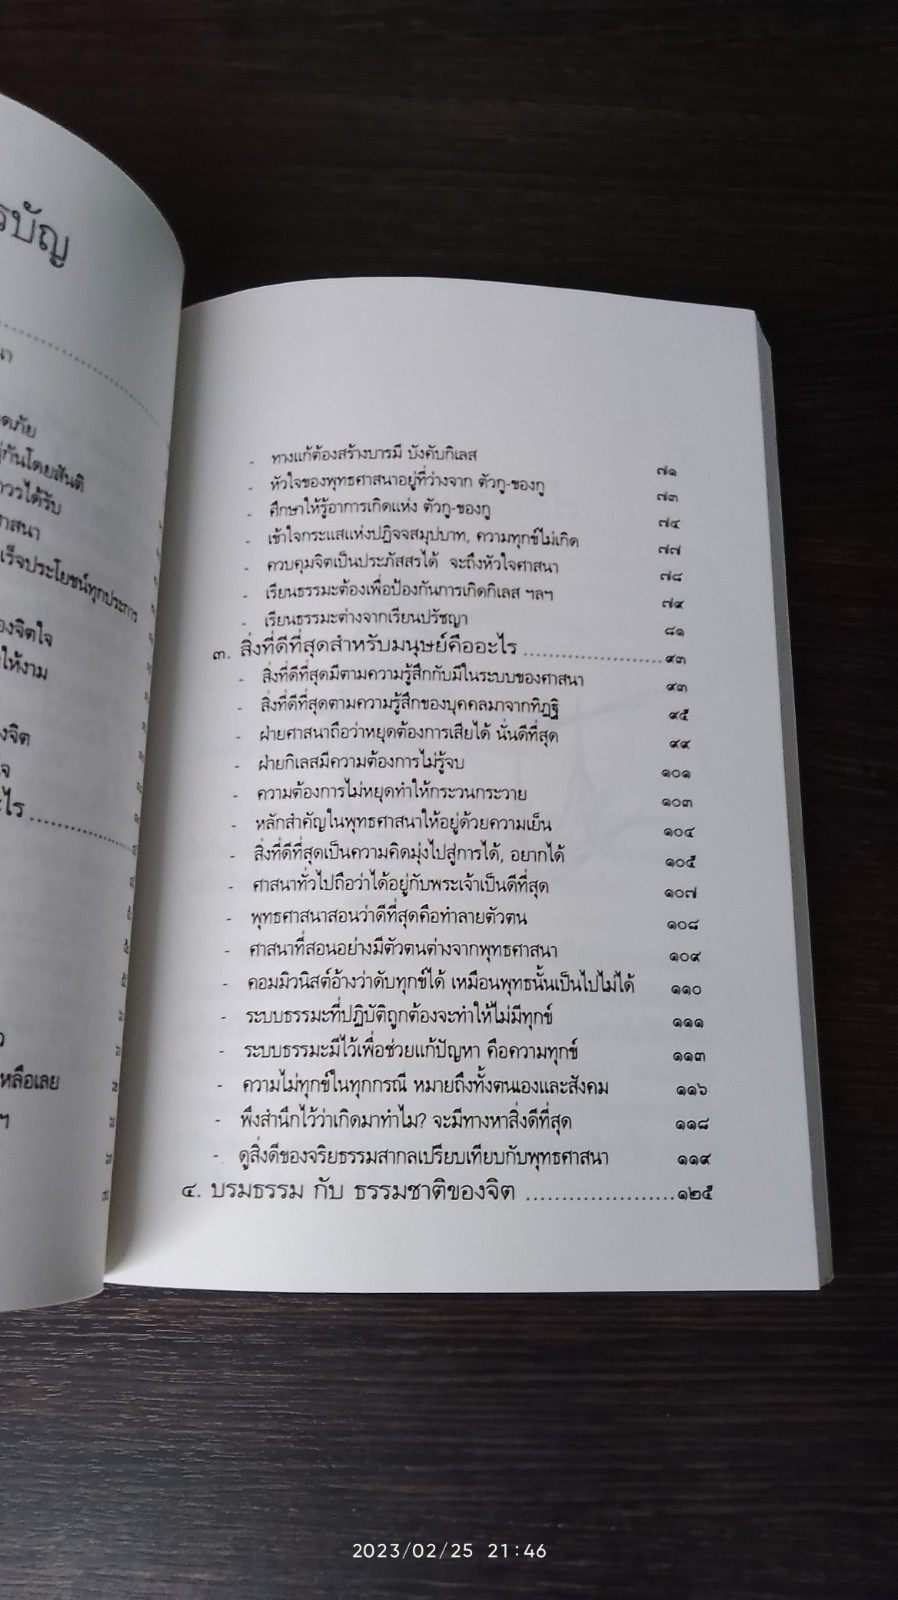 รบัญ
นา
ดภัย
กันโดยสันติ
วรได้รับ
ศาสนา
เร็จประโยชน์ทุกประการ
องจิตใจ
ให้งาม
งจิต
ใจ
ะไร
หลือเลย
ฯ
- ทางแก้ต้องสร้างบารมี บังคับกิเลส ๗๑
- หัวใจของพุทธศาสนาอยู่ที่ว่างจาก ตัวกู-ของกู ๗๓
- ศึกษาให้รู้อาการเกิดแห่ง ตัวกู-ของกู ๗๔
- เข้าใจกระแสแห่งปฏิจจสมุปบาท, ความทุกข์ไม่เกิด ๗๗
- ควบคุมจิตเป็นประภัสสรได้ จะถึงหัวใจศาสนา ๗๘
- เรียนธรรมะต้องเพื่อป้องกันการเกิดกิเลส ฯลฯ ๗๙
- เรียนธรรมะต่างจากเรียนปรัชญา ๘๑
๓. สิ่งที่ดีที่สุดสำหรับมนุษย์คืออะไร ......................๙๓
- สิ่งที่ดีที่สุดมีตามความรู้สึกกับมีในระบบของศาสนา ๙๓
- สิ่งที่ดีที่สุดตามความรู้สึกของบุคคลมาจากทิฏฐิ ๙๕
- ฝ่ายศาสนาถือว่าหยุดต้องการเสียได้ นั่นดีที่สุด ๙๙
- ฝ่ายกิเลสมีความต้องการไม่รู้จบ ๑๐๑
- ความต้องการไม่หยุดทำให้กระวนกระวาย ๑๐๓
- หลักสำคัญในพุทธศาสนาให้อยู่ด้วยความเย็น ๑๐๔
- สิ่งที่ดีที่สุดเป็นความคิดมุ่งไปสู่การได้, อยากได้ ๑๐๕
- ศาสนาทั่วไปถือว่าได้อยู่กับพระเจ้าเป็นดีที่สุด ๑๐๗
- พุทธศาสนาสอนว่าดีที่สุดคือทำลายตัวตน ๑๐๘
- ศาสนาที่สอนอย่างมีตัวตนต่างจากพุทธศาสนา ๑๐๙
- คอมมิวนิสต์อ้างว่าดับทุกข์ได้ เหมือนพุทธนั้นเป็นไปไม่ได้ ๑๑๐
- ระบบธรรมะที่ปฏิบัติถูกต้องจะทำให้ไม่มีทุกข์ ๑๑๑
- ระบบธรรมะมีไว้เพื่อช่วยแก้ปัญหา คือความทุกข์ ๑๑๓
- ความไม่ทุกข์ในทุกกรณี หมายถึงทั้งตนเองและสังคม ๑๑๖
- พึงสำนึกไว้ว่าเกิดมาทำไม? จะมีทางหาสิ่งดีที่สุด ๑๑๘
- ดูสิ่งดีของจริยธรรมสากลเปรียบเทียบกับพุทธศาสนา ๑๑๙
๔. บรมธรรม กับ ธรรมชาติของจิต .....................๑๒๕
2023/02/25 21:46